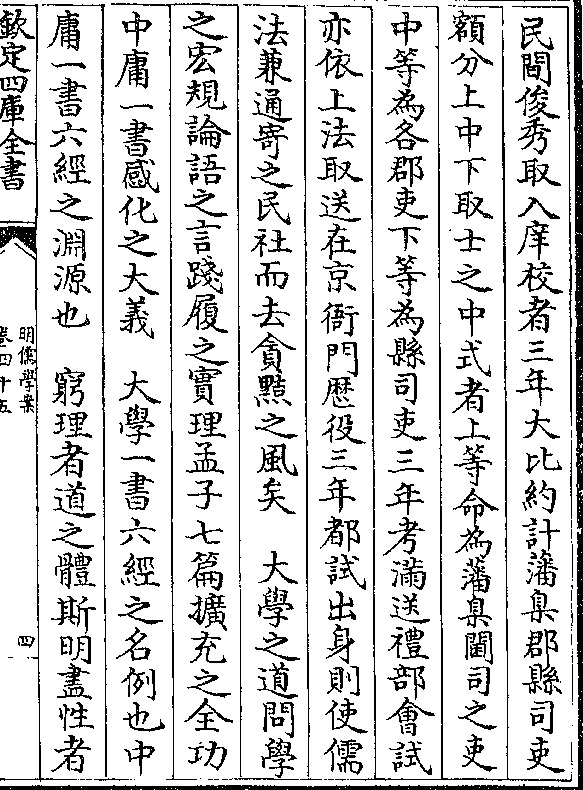 民間俊秀取入庠校者三年大比約計藩臬郡縣司吏
額分上中下取士之中式者上等命為藩臬閫司之吏
中等為各郡吏下等為縣司吏三年考滿送禮部會試
亦依上法取送在京衙門歴役三年都試出身則使儒
法兼通寄之民社而去貪黠之風矣　大學之道問學
之宏規論語之言踐履之實理孟子七篇擴充之全功
中庸一書感化之大義　大學一書六經之名例也中
庸一書六經之淵源也　窮理者道之體斯明盡性者
欽定四庫全書
明儒學案
卷四十五
四